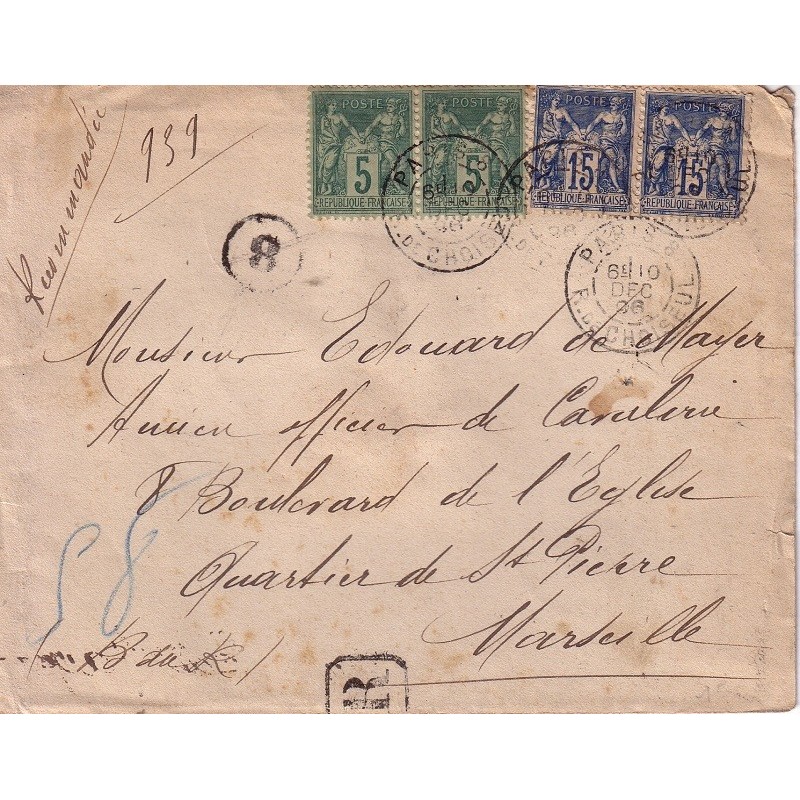 Recommandée
939
POSTE POSTE POSTE POSTE
5 5 15 15
REPUBLIQUE FRANCAISE REPUBLIQUE FRANCAISE REPUBLIQUE FRANCAISE REPUBLIQUE FRANCAISE
PARIS
R. DE CHOISEUL
8
PARIS
6E 10
DEC
86
R. DE CHOISEUL
Monsieur Edouard de Mayer
Ancien officier de Cavalerie
8 Boulevard de l'Eglise
Quartier de St Pierre
Marseille
58
(B du R)
R